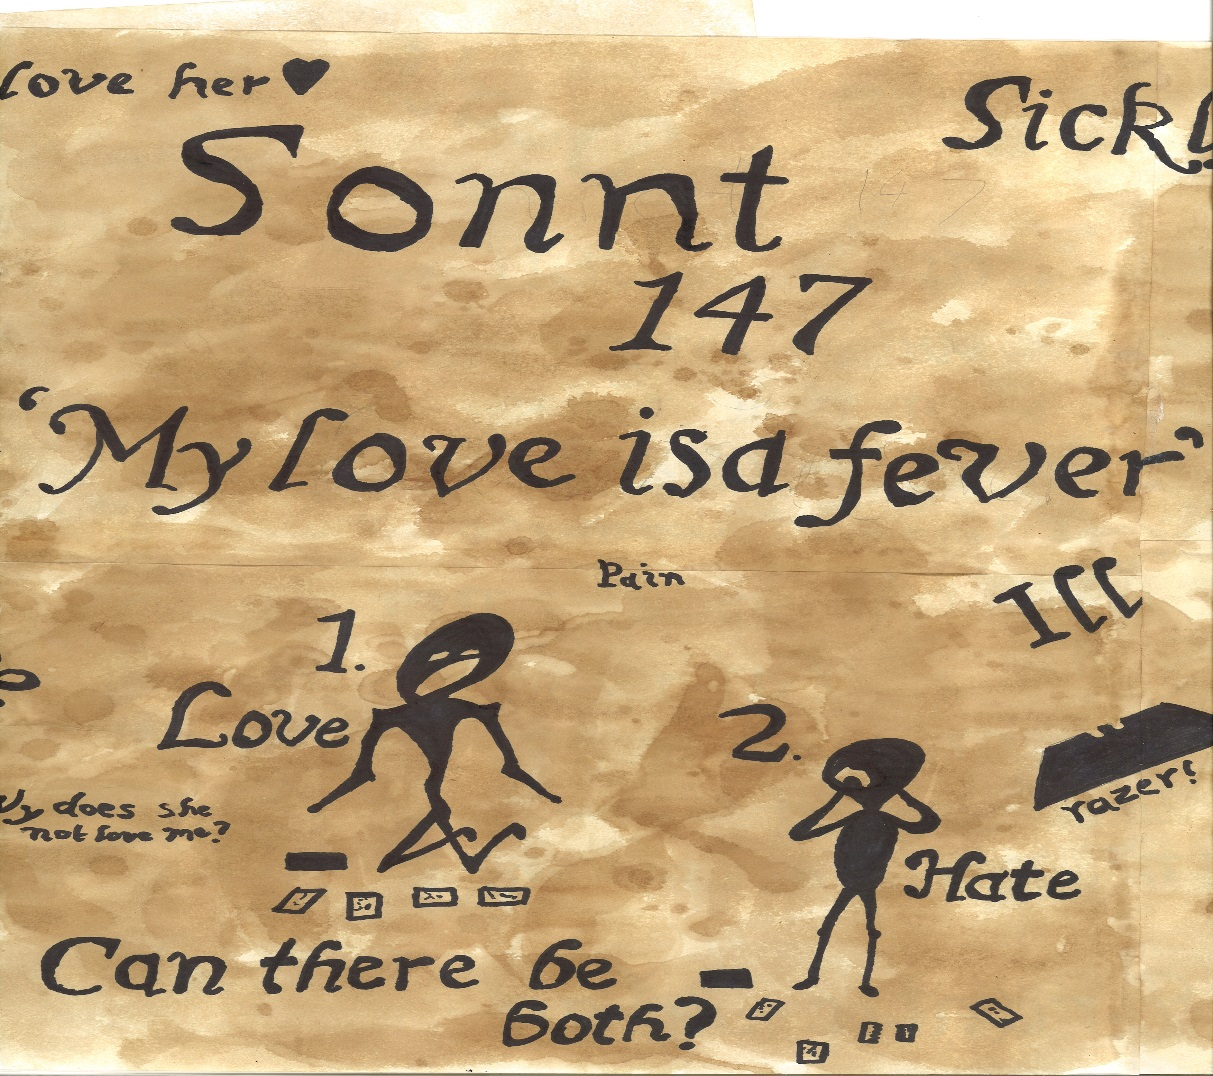 love her
Sickl
Sonnt
147
'My love is a fever'
Pain
Ill
1.
Love
2.
razer!
does she
not love me?
Hate
Can there be
both?